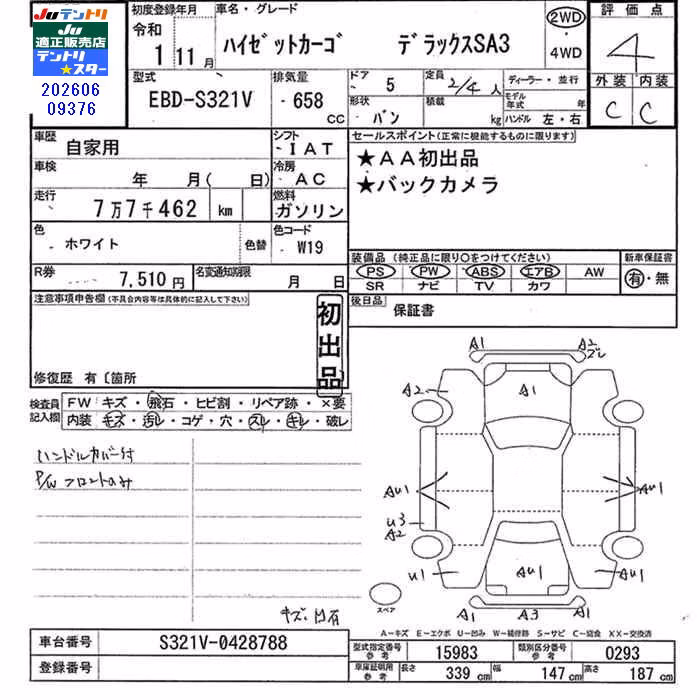 JUテントリ
JU
適正販売店
テントリ★スター
202606
09376
初度登録年月
令和
1 11月
車名・グレード
ハイゼットカーゴ デラックスSA3
2WD
・
4WD
評価点
4
型式
EBD-S321V
排気量
658
CC
ドア
5
定員
2/4人
ディーラー・並行
形状
バン
積載
kg
モデル年式 年
ハンドル 左・右
外装 内装
C C
車歴
自家用
シフト
IAT
セールスポイント(正常に機能するものに限ります)
★AA初出品
★バックカメラ
車検
年 月( 日)
冷房
AC
走行
7万7千462 km
燃料
ガソリン
色
ホワイト
色替
色コード
W19
装備品(純正品に限り○をつけてください)
PS PW ABS エアB AW
SR ナビ TV カワ
新車保証書
有・無
R券
7,510円
名変通知期限
月 日
後日品
保証書
注意事項申告欄(不具合内容等は具体的に記入して下さい)
初出品
修復歴 有〔箇所
検査員
記入欄
FW キズ・飛石・ヒビ割・リペア跡・×要
内装 キズ・汚レ・コゲ・穴・スレ・キレ・破レ
ハンドルカバー付
P/W フロントのみ
キズ、凹有
A1 A2
ズレ
A2 A1
AU1 AU1
U3
A2
U1 AU1 AU1
A1 A3 A1
スペア
A−キズ E−エクボ U−凹み W−補修跡 S−サビ C−腐食 XX−交換済
車台番号
S321V-0428788
登録番号
型式指定番号
参考
15983
類別区分番号
参考
0293
車庫証明用
参考
長さ 339 cm 幅 147 cm 高さ 187 cm